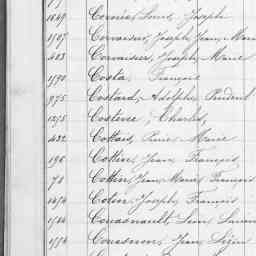 1649 Cornic, Louis, Joseph
1707 Corvaisier, Joseph, Jean, Marie
403 Corvaisier, Joseph, Marie
1590 Costa, François
975 Costard, Adolphe, Prudent
1275 Costerie, Charles,
432 Cottais, Pierre, Marie
196 Cottin, Jean, François,
71 Cottin, Jean, Marie, François
1474 Cotin, Joseph, François
Couasnault, Léon,
1774 Jean